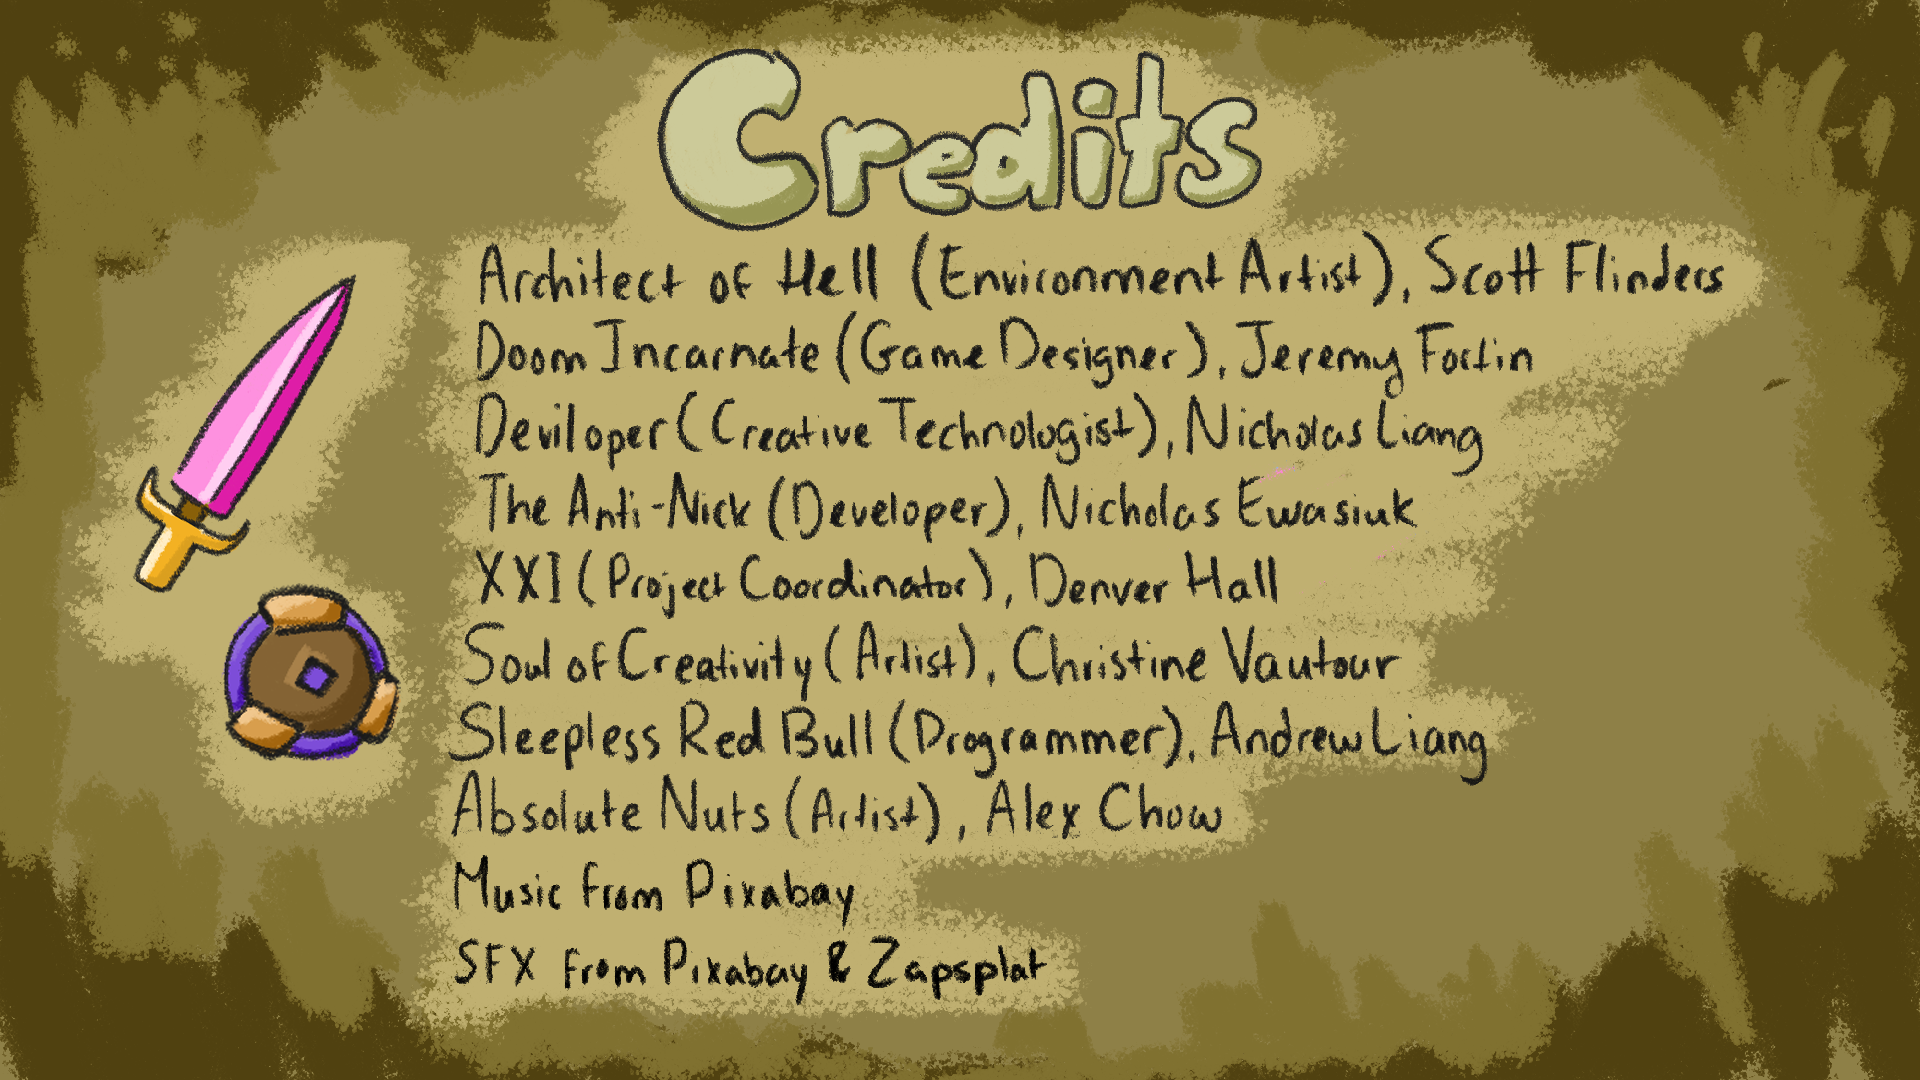 Credits
Architect of Hell (Environment Artist), Scott Flinders
Doom Incarnate (Game Designer), Jeremy Fortin
Deviloper (Creative Technologist), Nicholas Liang
The Anti-Nick (Developer), Nicholas Ewasiuk
XXI (Project Coordinator), Denver Hall
Soul of Creativity (Artist), Christine Vautour
Sleepless Red Bull (Programmer), Andrew Liang
Absolute Nuts (Artist), Alex Chow
Music from Pixabay
SFX from Pixabay & Zapsplat